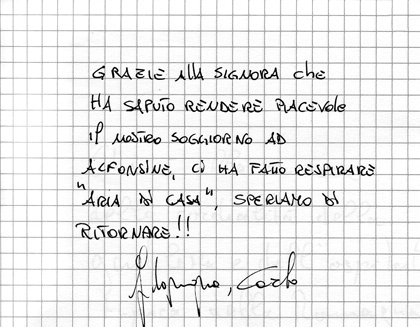 GRAZIE Alla SIGNORA che
HA SAPUTO RENDERE PIACEVOLE
il NOSTRO SOGGIORNO AD
ALFONSINE, CI HA FATTO RESPIRARE
"ARIA DI CASA", SPERIAMO DI
RITORNARE!!
Carlo